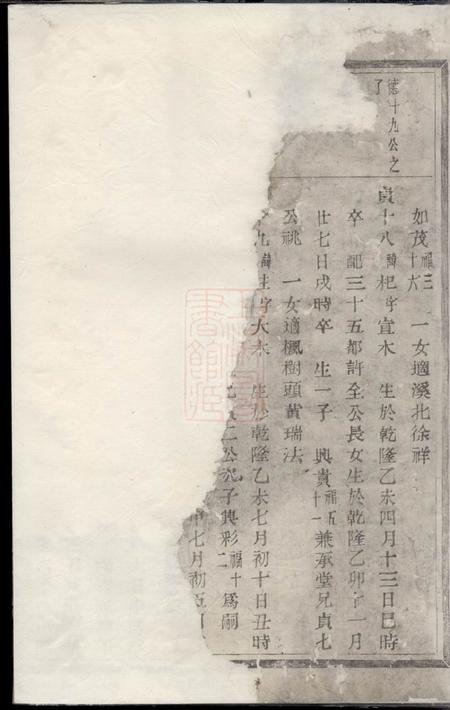 德十九公之
了
如茂福三十六 一女適溪北徐祥
貞十八諱杞字宜木 生於乾隆乙未四月十三日巳時
卒 配三十五都許全公長女生於乾隆乙卯十一月
廿七日戌時卒 生一子 興貴福五十一兼承堂兄貞七
公祧 一女適楓樹頭黃瑞法
九諱桂字大木 生於乾隆乙未七月初十日丑時
二公次子興彩福十二為嗣
七月初五日
書館